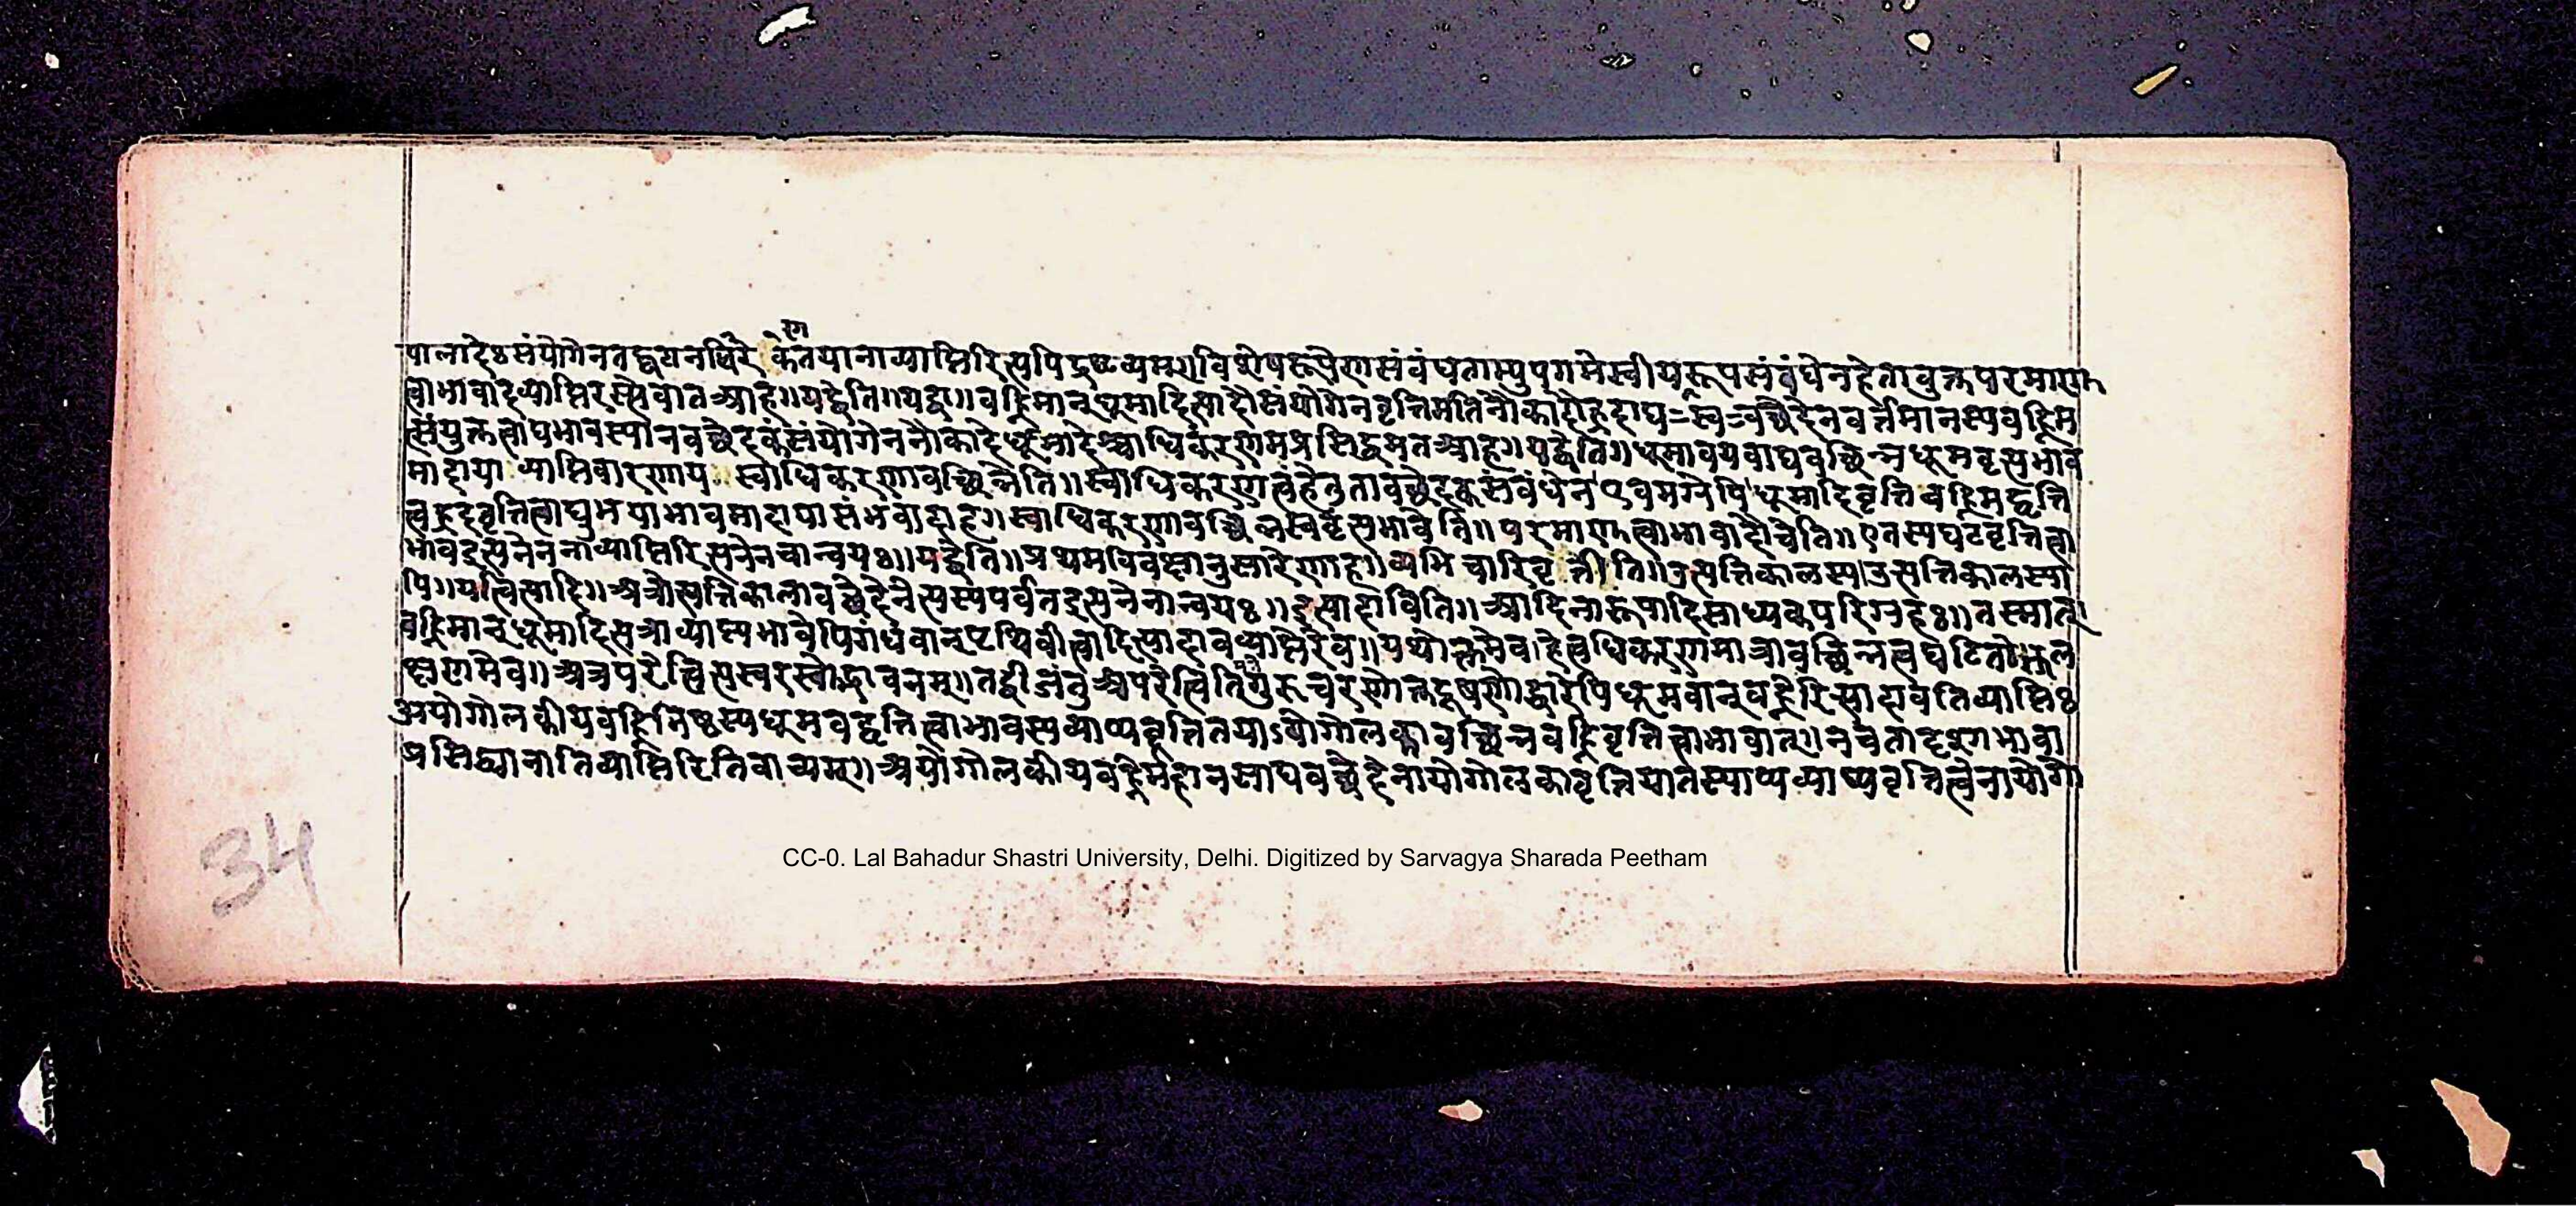 ण
पालादेः संयोगेन तद्वयनधिरे केतयानाव्याप्तिरित्यपि द्रष्टव्यम् ॥ विशेषरूपेण संबंधताभ्युपगमे स्वीयरूपसंबंधेन हेतावुक्तपरमाणु
त्वाभावादव्याप्तिरस्त्येवात आह ॥ यद्वेति ॥ यद्वा ॥ वह्निमान् धूमादित्यादौ संयोगेन वृत्तिमति नौकादौ ह्रदाद्य=स्व=वच्छेदेन वर्त्तमानस्य वह्निम
त्संयुक्तत्वाद्यभावस्यानवच्छेदकसंयोगेन नौकादेर्धूमादेश्चाधिकरणमप्रसिद्धमत आह ॥ यद्वेति ॥ धूमावयवाद्यवच्छिन्नधूमवृत्त्यभाव
मादाया व्याप्तिवारणाय स्वाधिकरणावच्छिन्नेति ॥ स्वाधिकरणत्वं हेतुतावच्छेदकसंबंधेन एवमग्रेपि धूमादिवृत्ति वह्निमद्वृत्ति
त्वह्रदवृत्तित्वाद्युभयाभावमादायासंभवादाह ॥ स्वाधिकरणावच्छिन्नस्ववृत्त्यभावेति ॥ परमाणुत्वाभावादौ चेति ॥ एतस्य घटवृत्तित्वा
भावइत्यनेननाव्याप्तिरित्यनेन चान्वयः ॥ यद्वेति ॥ प्रथमविवक्षानुसारेणाह ॥ व्यभिचारिवृत्तीति ॥ उत्पत्तिकालस्य उत्पत्तिकालस्या
पि ॥ यत्त्वित्यादि ॥ अत्रोत्पत्तिकालावच्छेदेनेत्यस्य पर्वतइत्यनेनान्वयः ॥ इत्यादाविति ॥ आदिना रूपादिसाध्यकपरिग्रहः ॥ तस्मात्
वह्निमान् धूमादित्यत्राव्याप्त्यभावेपि गंधवान् पृथिवीत्वादित्यादावव्याप्तिरेव ॥ यथोक्तमेव हेत्वधिकरणमात्रावच्छिन्नत्वघटितोक्तल
क्षणमेव ॥ अत्र परेत्वित्यस्वरसोद्भावनम् ॥ तद्बीजंतु अपरेत्विति गुरुचरणोक्तदूषणोद्धारेपि धूमवान् वह्नेरित्यादावतिव्याप्तिः
अयोगोलकीयवह्निनिष्ठस्य धूमवद्वृत्तित्वाभावस्य व्याप्यवृत्तितयाऽयोगोलकावच्छिन्नवह्निवृत्तित्वाभावात् ॥ न च तादृशाभावा
प्रसिद्ध्यानातिव्याप्तिरिति वाच्यम् ॥ अयोगोलकीयवह्नेर्महानसाद्यवच्छेदेनायोगोलकावृत्तितयातस्याप्यव्याप्यवृत्तित्वेनायोगो
34
CC-0. Lal Bahadur Shastri University, Delhi. Digitized by Sarvagya Sharada Peetham